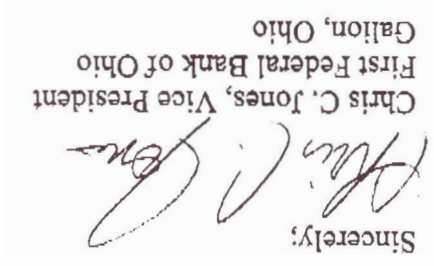 Sincerely;
Chris C. Jones
Chris C. Jones, Vice President
First Federal Bank of Ohio
Galion, Ohio